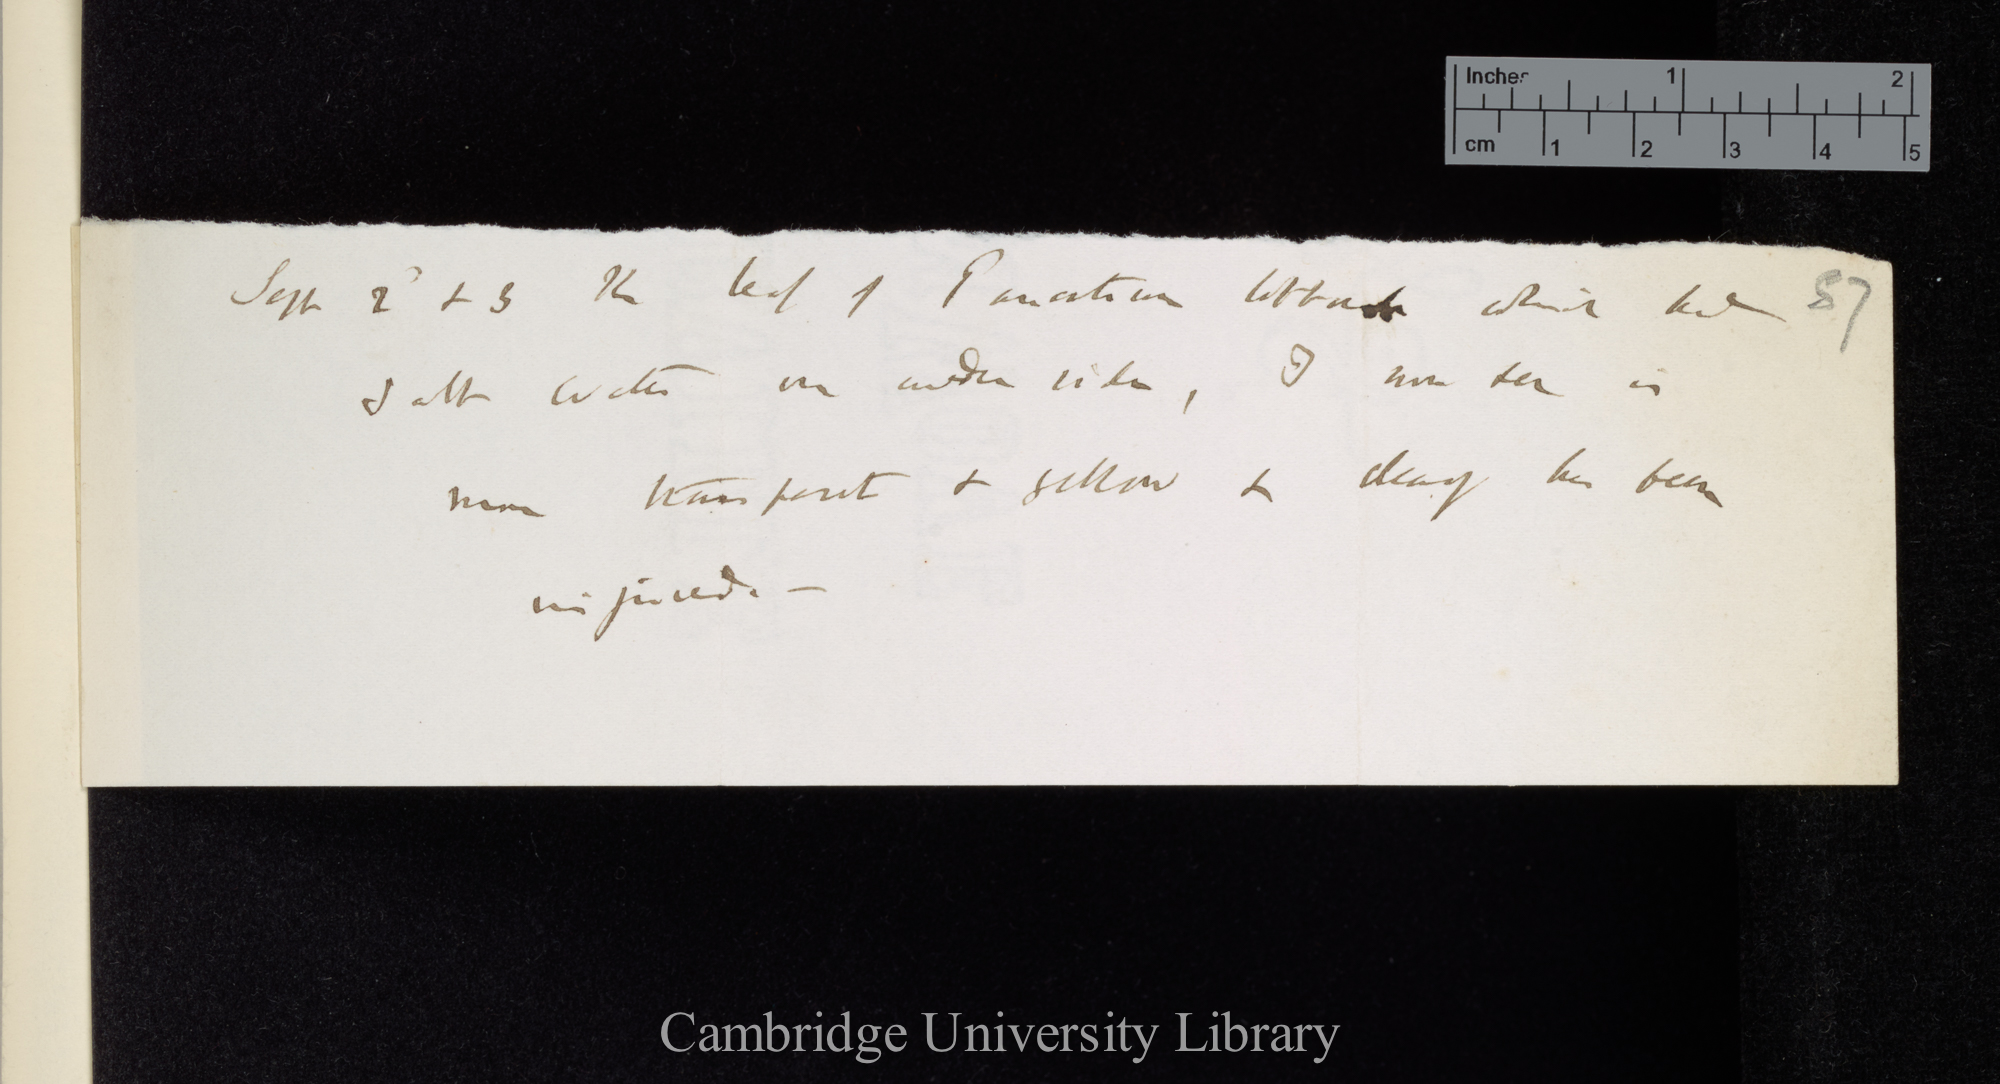 Inches 1 2
cm 1 2 3 4 5
Sept 2d & 3 The leaf of Pancratium littorale which had
57
Salt water on under side, I now see is
more transparent & yellow & clearly has been
injured. —
Cambridge University Library